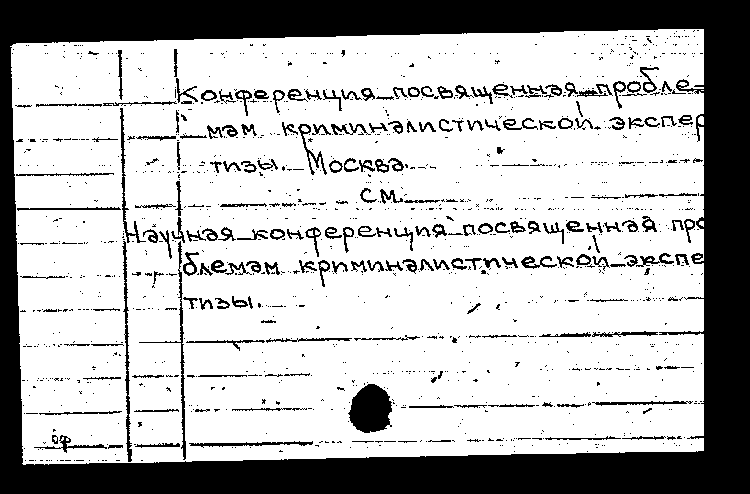 Конференция посвященная пробле-
мам криминалистической экспер
тизы. Москва.
см.
Научная конференция посвященная про
блемам криминалистической экспе
тизы.
оф